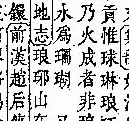 貢惟球琳琅
乃火成者非琅
為珊瑚
地志琅邪山
前漢趙后